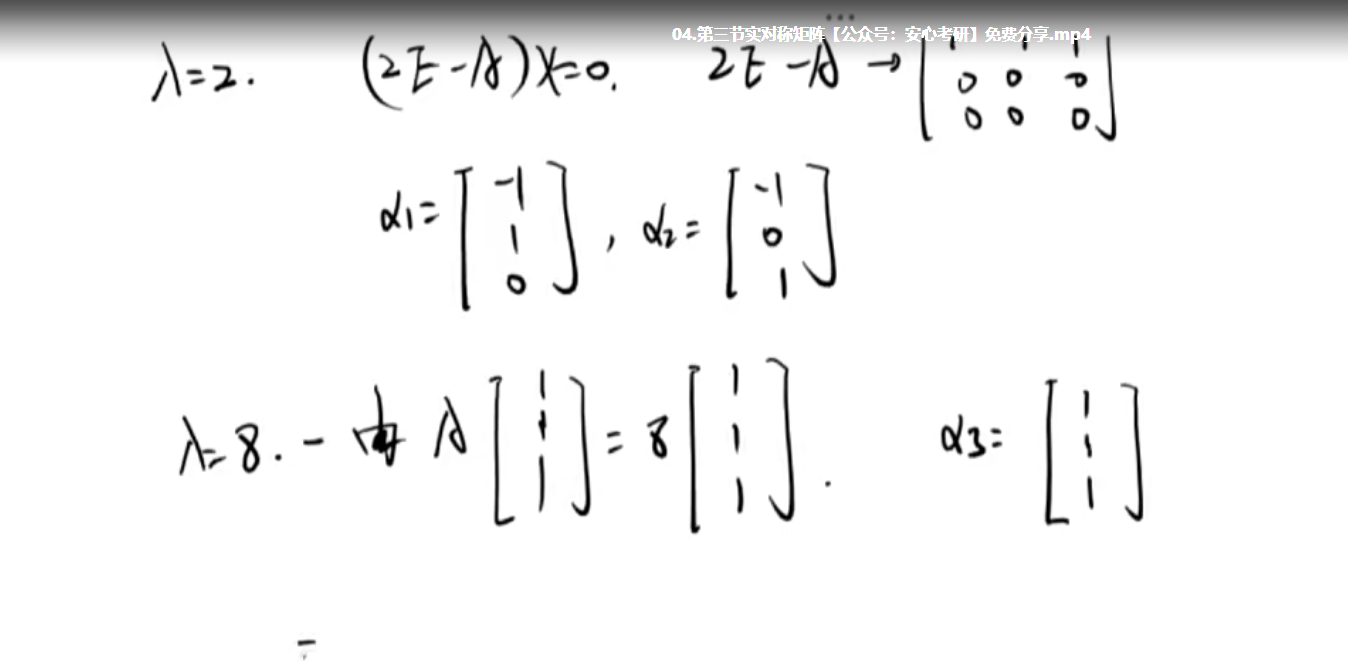 04.第三节实对称矩阵【公众号：安心考研】免费分享.mp4
λ=2. (2E-A)X=0. 2E-A → [1 1 1
0 0 0
0 0 0]
α1= [-1 1 0], α2= [-1 0 1]
λ=8. - 由 A [1 1 1] = 8 [1 1 1]. α3= [1 1 1]